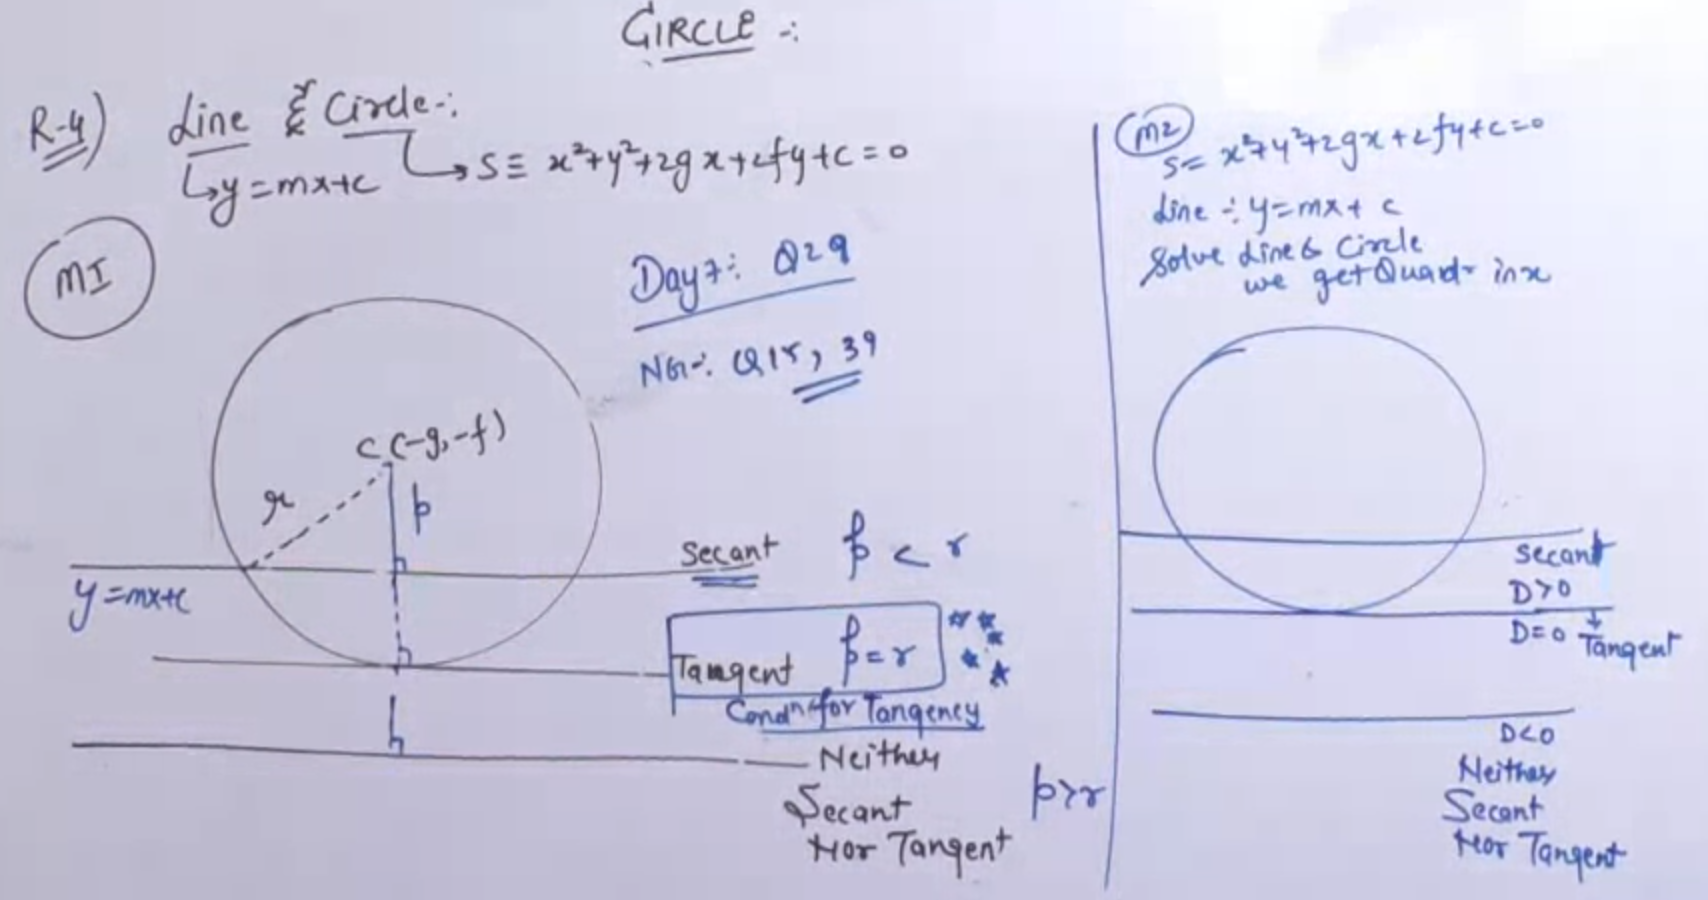 CIRCLE -:
R-4) Line & Circle-:
↳y=mx+c ↳S≡ x²+y²+2gx+2fy+c=0
MI
Day7:- Q29
NG-: Q15, 39
C(-g,-f)
r
p
y=mx+c
Secant p < r
Tangent p=r
Condn for Tangency
Neither
Secant
Nor Tangent
p>r
M2
S≡ x²+y²+2gx+2fy+c=0
Line -: y=mx+c
Solve Line & Circle
we get Quadr in x
Secant
D>0
D=0 Tangent
D<0
Neither
Secant
Nor Tangent